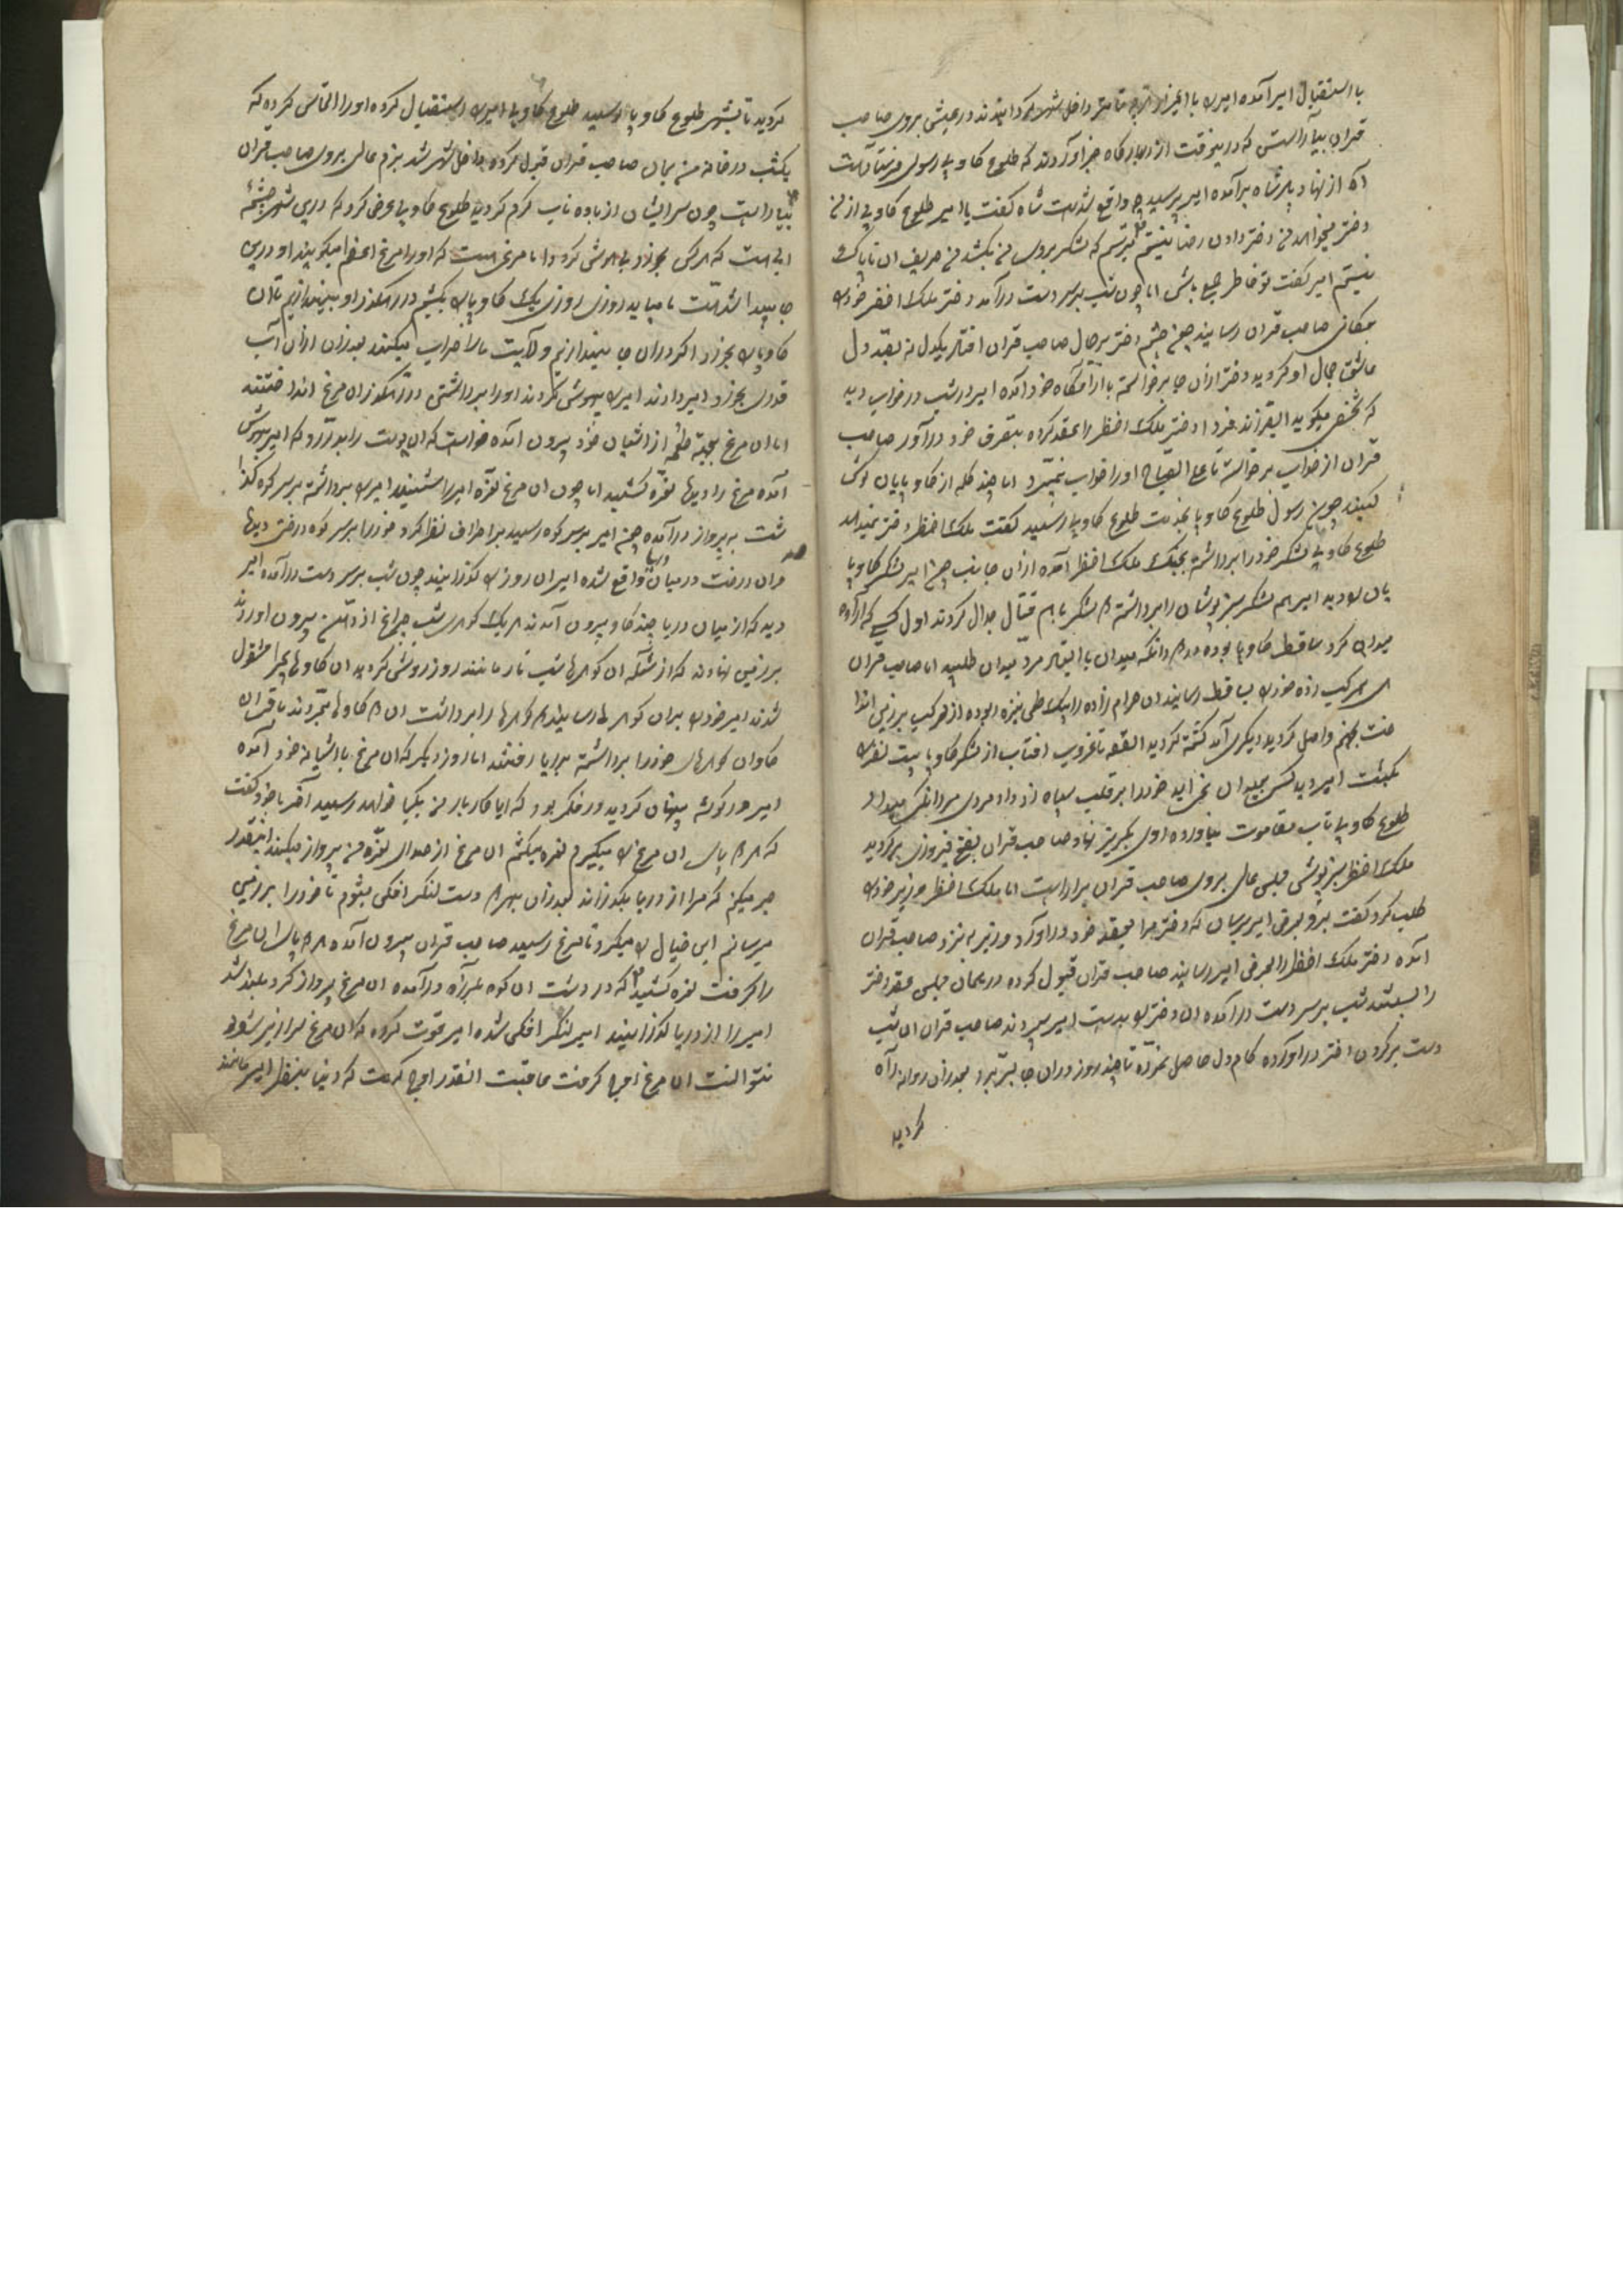 با استقبال امیر آمده امیررا با اعزاز تمام داخل شهر کردانیدند در عیشی بروی صاحب
قران بیاراست که درینوقت از دربارکاه خبر آوردند که طلوع کاوپا رسولی فرستاده است
آه از نهاد پادشاه برآمده امیر پرسید چه واقع شده است شاه کفت یا امیر طلوع کاوپا از من
دختر میخواهد من دختر دادن رضا نیستم میترسم که لشکر بروی من بکشد من حریف ان ناپاک
نیستم امیر کفت تو خاطر جمع باش اما چون شب برسر دست درآمد دختر ملک اخضر خودرا
بمکان صاحب قران رسانید چون چشم دختر برجمال صاحب قران افتاد بیکدل نه بصد دل
عاشق جمال او کردید دختر ازان جا برخواسته با ارامکاه خود آمده امیر در شب در خواب دید
که شخصی میکوید ایفرزند فردا دختر ملک اخضر را بعقد کرده بتصرف خود درآور صاحب
قران از خواب برخواست تا علی الصباح اورا خواب نمیبرد اما چند کلمه از کاوپایان کوش
کنید چون رسول طلوع کاوپا بخدمت طلوع کاوپا رسید کفت ملک اخضر دختر نمیدهد
طلوع کاوپا لشکر خودرا برداشته بجنک ملک اخضر آمده ازان جانب چون امیر لشکر کاوپا
یان را دید امیر هم لشکر سبزپوشان را برداشته هر دو لشکر باهم قتال جدال کردند اول کسی که اراده
میدان کرد ساقط کاوپا بوده در میدان با ایستاد مرد میدان طلبید اما صاحب قران
مرکب زده خودرا بساقط رسانید ان حرام زاده را بیک طعن نیزه ربوده از مرکب برزمین اندا
خت بجهنم واصل کردید دیکری آمد کشته کردید القصه تا غروب افتاب از لشکر کاوپا بیست نفر را
بکشت امیر دید کس بمیدان نمی اید خودرا بر قلب سپاه زد داد مردی مردانکی میداد
طلوع کاوپا تاب مقاومت نیاورده روی بکریز نهاد صاحب قران بفتح فیروزی برکردید
ملک اخضر سبزپوش مجلس عالی بروی صاحب قران براراست اما ملک اخضر وزیر خودرا
طلب کرد کفت برو بعرض امیر برسان که دختر مرا بعقد خود دراورد وزیر به نزد صاحب قران
آمده دختر ملک اخضر را بعرض امیر رسانید صاحب قران قبول کرده در همان مجلس عقد دختر
را بستند شب برسر دست درآمده ان دختر را بدست امیر سپردند صاحب قران ان شب
دست برکردن دختر دراورده کام دل حاصل نموده تا چند روز دران جا بسر برد بعدازان روانه راه
کردید
کردید تا بشهر طلوع کاوپا رسید طلوع کاوپا امیررا استقبال کرده اورا التماس کرده که
یکشب در خانه من بمان صاحب قران قبول کرده داخل شهر شد بزم عالی بروی صاحب قران
بیاراست چون سر ایشان از باده ناب کرم کردید طلوع کاوپا عرض کرد که درین شهر چشمه
ابی است که هرکس بخورد بی هوش کردد اما مرغی است که اورا مرغ اعظم میکویند او درین
جا پیدا شده است ما میباید روزی روزی یک کاوپا را بکشیم در رهکذر او بیندازیم تا ان
کاوپارا بخورد اکر دران جا نیندازیم ولایت مارا خراب میکند بعدازان ازان آب
قدری بخورد امیر دادند امیررا بیهوش کردند اورا برداشتی در رهکذر ان مرغ انداختند
اما ان مرغ بجهته طعمه از اشیان خود بیرون آمده خواست که ان پوست را بدرد که امیر بهوش
آمده مرغ را دید نعره کشید اما چون ان مرغ نعره امیررا شنید امیررا برداشته برسر کوه کذا
شت به پرواز درآمده چون امیر برسر کوه رسید بر اطراف نظر کرد خودرا برسر کوه درختی دید
ان درخت درمیان دریا واقع شده امیر ان روز را کذرانید چون شب برسر دست درآمده امیر
دید که از میان دریا چند کاو بیرون آمدند هریک کوهر شب چراغ از دهن بیرون اوردند
برزمین نهادند که از شعله ان کوهرها شب تار مانند روز روشن کردید ان کاوها بچرا مشغول
شدند امیر خودرا بران کوهرها رسانید کوهرها را برداشت ان کاوها نمردند باقی ان
کاوان کوهرهای خودرا برداشته بدریا رفتند اما روز دیکر که ان مرغ با اشیانه خود آمده
امیر در کوشه پنهان کردید در فکر بود که ایا کار بار من بکجا خواهد رسید آخر با خود کفت
که هردو پای ان مرغ را میکیرم نعره میکشم ان مرغ از صدای نعره من پرواز میکند اینقدر
صبر میکنم که مرا از دریا بکذراند بعدازان لنکر افکن میشوم تا خودرا برزمین
میرسانم این خیال را میکرد تا مرغ رسید صاحب قران بیرون آمده هردو پای ان مرغ
را کرفت نعره کشید که در و دشت ان کوه بلرزه درآمده ان مرغ پرواز کرد بلند شد
امیر را از دریا کذرانید امیر لنکر افکن شده امیر قوت کرده که ان مرغ سرازیر شود
نتوانست ان مرغ اوج کرفت عاقبت انقدر اوج کرفت که دنیا بنظر امیر مانند